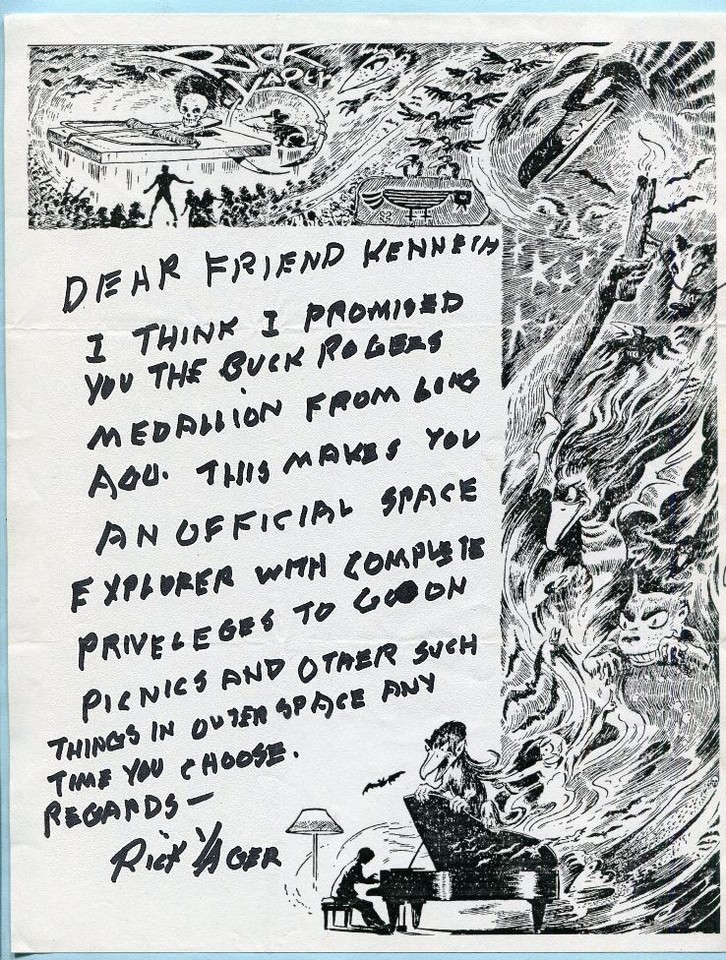 RICK
YAGER
DEAR FRIEND KENNETH
I THINK I PROMISED
YOU THE BUCK ROGERS
MEDALLION FROM LONG
AGO. THIS MAKES YOU
AN OFFICIAL SPACE
EXPLORER WITH COMPLETE
PRIVELEGES TO GO ON
PICNICS AND OTHER SUCH
THINGS IN OUTER SPACE ANY
TIME YOU CHOOSE.
REGARDS—
RICK YAGER